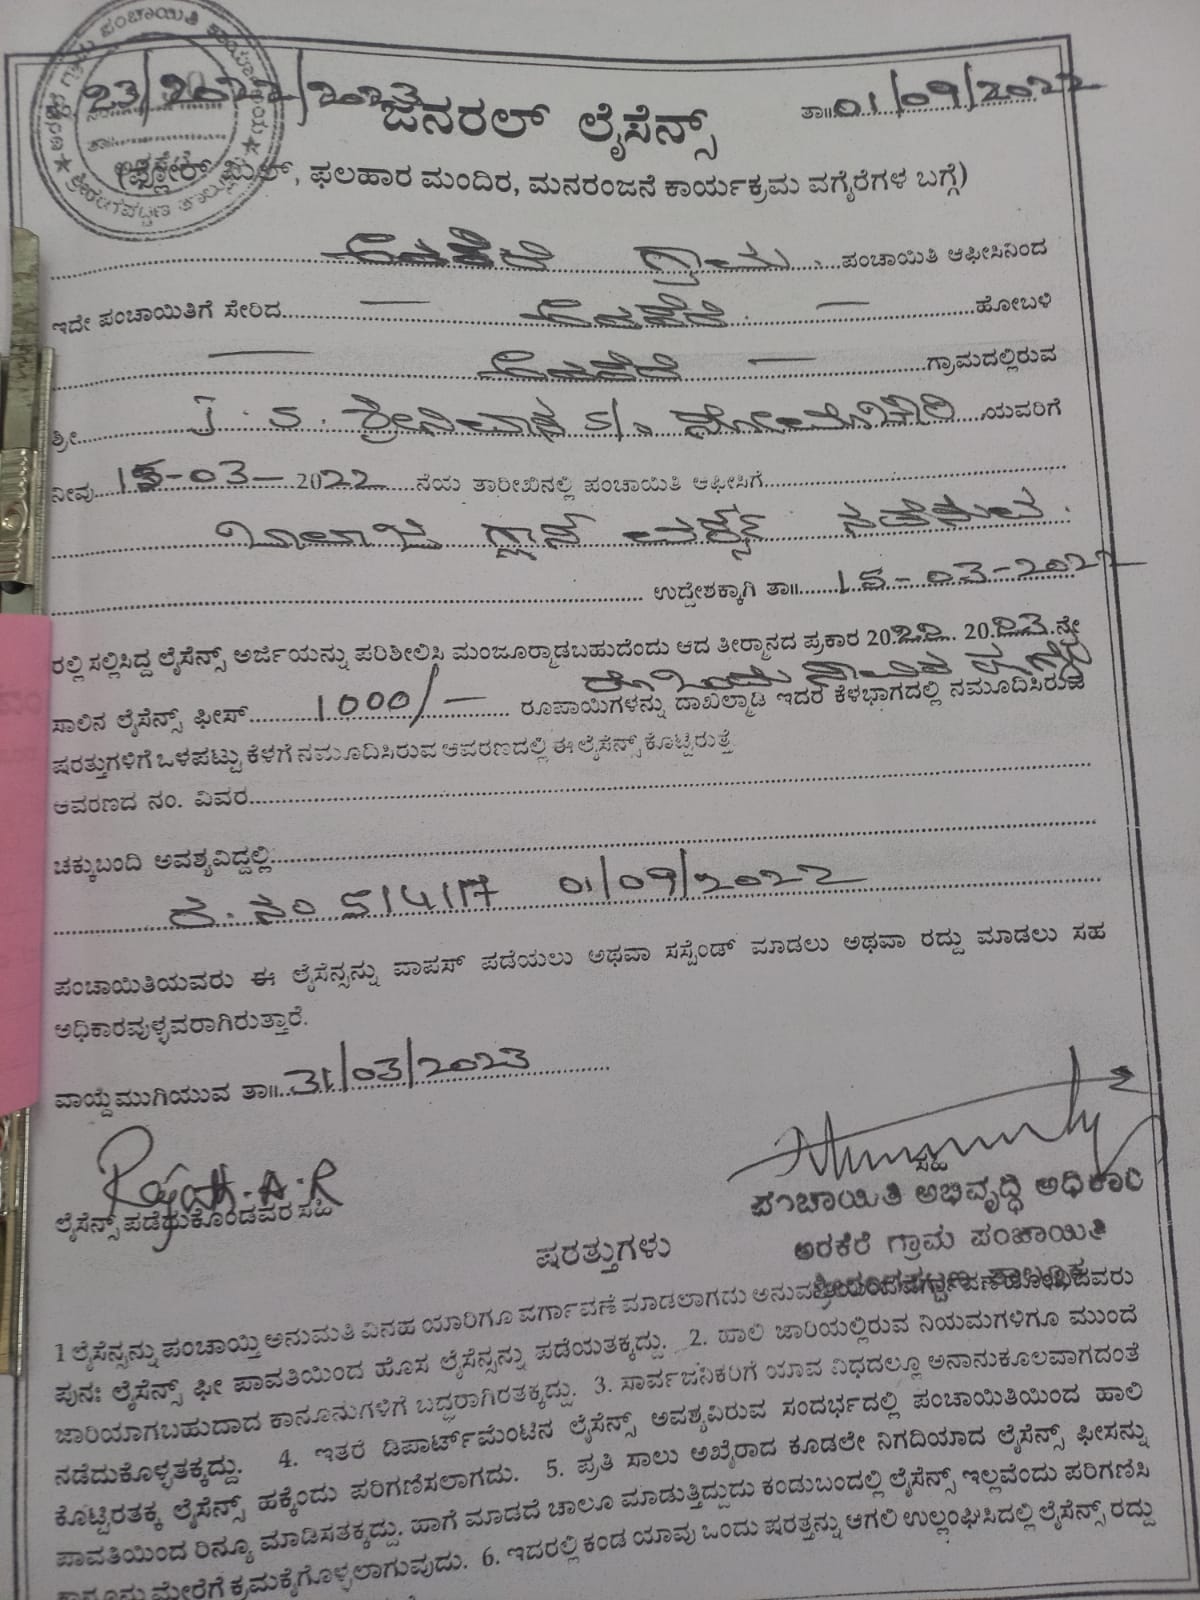 23/2022/2023
ತಾ॥ 01/09/2022
ಜನರಲ್ ಲೈಸೆನ್ಸ್
(ಫ್ಲೋರ್ ಮಿಲ್, ಫಲಹಾರ ಮಂದಿರ, ಮನರಂಜನೆ ಕಾರ್ಯಕ್ರಮ ವಗೈರೆಗಳ ಬಗ್ಗೆ)
ಅರಕೆರೆ ಗ್ರಾಮ ಪಂಚಾಯಿತಿ ಆಫೀಸಿನಿಂದ
ಇದೇ ಪಂಚಾಯಿತಿಗೆ ಸೇರಿದ — ಅರಕೆರೆ — ಹೋಬಳಿ
— ಅರಕೆರೆ — ಗ್ರಾಮದಲ್ಲಿರುವ
ಶ್ರೀ J. S. ಶ್ರೀನಿವಾಸ S/o ಯವರಿಗೆ
ನೀವು 15-03-2022 ನೆಯ ತಾರೀಖಿನಲ್ಲಿ ಪಂಚಾಯಿತಿ ಆಫೀಸಿಗೆ
ಬಾಲಾಜಿ ಗ್ಲಾಸ್ ವರ್ಕ್ಸ್ ನಡೆಸುವ
ಉದ್ದೇಶಕ್ಕಾಗಿ ತಾ॥ 15-03-2022
ರಲ್ಲಿ ಸಲ್ಲಿಸಿದ್ದ ಲೈಸೆನ್ಸ್ ಅರ್ಜಿಯನ್ನು ಪರಿಶೀಲಿಸಿ ಮಂಜೂರ್‍ಮಾಡಬಹುದೆಂದು ಆದ ತೀರ್ಮಾನದ ಪ್ರಕಾರ 2022 2023 ನ್ನೇ
ರೂ ಒಂದು ಸಾವಿರ ಮಾತ್ರ
ಸಾಲಿನ ಲೈಸೆನ್ಸ್ ಫೀಸ್ 1000/- ರೂಪಾಯಿಗಳನ್ನು ದಾಖಲ್ಮಾಡಿ ಇದರ ಕೆಳಭಾಗದಲ್ಲಿ ನಮೂದಿಸಿರುವ
ಷರತ್ತುಗಳಿಗೆ ಒಳಪಟ್ಟು ಕೆಳಗೆ ನಮೂದಿಸಿರುವ ಆವರಣದಲ್ಲಿ ಈ ಲೈಸೆನ್ಸ್ ಕೊಟ್ಟಿರುತ್ತೆ
ಆವರಣದ ನಂ. ವಿವರ
ಚಕ್ಕುಬಂದಿ ಅವಶ್ಯವಿದ್ದಲ್ಲಿ
ರ. ನಂ 5/4/17 01/09/2022
ಪಂಚಾಯಿತಿಯವರು ಈ ಲೈಸೆನ್ಸನ್ನು ವಾಪಸ್ ಪಡೆಯಲು ಅಥವಾ ಸಸ್ಪೆಂಡ್ ಮಾಡಲು ಅಥವಾ ರದ್ದು ಮಾಡಲು ಸಹ
ಅಧಿಕಾರವುಳ್ಳವರಾಗಿರುತ್ತಾರೆ.
ವಾಯ್ದೆಮುಗಿಯುವ ತಾ॥ 31/03/2023
Rajath.A.R
ಲೈಸೆನ್ಸ್ ಪಡೆದುಕೊಂಡವರ ಸಹಿ
ಸಹಿ
ಪಂಚಾಯಿತಿ ಅಭಿವೃದ್ಧಿ ಅಧಿಕಾರಿ
ಅರಕೆರೆ ಗ್ರಾಮ ಪಂಚಾಯಿತಿ
ಶ್ರೀರಂಗಪಟ್ಟಣ ತಾಲ್ಲೂಕು
ಷರತ್ತುಗಳು
1 ಲೈಸೆನ್ಸನ್ನು ಪಂಚಾಯ್ತಿ ಅನುಮತಿ ವಿನಹ ಯಾರಿಗೂ ವರ್ಗಾವಣೆ ಮಾಡಲಾಗದು ವರ್ಗಾವಣೆ ಹೊಂದಿದವರು
ಪುನಃ ಲೈಸೆನ್ಸ್ ಫೀ ಪಾವತಿಯಿಂದ ಹೊಸ ಲೈಸೆನ್ಸನ್ನು ಪಡೆಯತಕ್ಕದ್ದು. 2. ಹಾಲಿ ಜಾರಿಯಲ್ಲಿರುವ ನಿಯಮಗಳಿಗೂ ಮುಂದೆ
ಜಾರಿಯಾಗಬಹುದಾದ ಕಾನೂನುಗಳಿಗೆ ಬದ್ಧರಾಗಿರತಕ್ಕದ್ದು. 3. ಸಾರ್ವಜನಿಕರಿಗೆ ಯಾವ ವಿಧದಲ್ಲೂ ಅನಾನುಕೂಲವಾಗದಂತೆ
ನಡೆದುಕೊಳ್ಳತಕ್ಕದ್ದು. 4. ಇತರೆ ಡಿಪಾರ್ಟ್‌ಮೆಂಟಿನ ಲೈಸೆನ್ಸ್ ಅವಶ್ಯವಿರುವ ಸಂದರ್ಭದಲ್ಲಿ ಪಂಚಾಯಿತಿಯಿಂದ ಹಾಲಿ
ಕೊಟ್ಟಿರತಕ್ಕ ಲೈಸೆನ್ಸ್ ಹಕ್ಕೆಂದು ಪರಿಗಣಿಸಲಾಗದು. 5. ಪ್ರತಿ ಸಾಲು ಅಖೈರಾದ ಕೂಡಲೇ ನಿಗದಿಯಾದ ಲೈಸೆನ್ಸ್ ಫೀಸನ್ನು
ಪಾವತಿಯಿಂದ ರಿನ್ಯೂ ಮಾಡಿಸತಕ್ಕದ್ದು. ಹಾಗೆ ಮಾಡದೆ ಚಾಲೂ ಮಾಡುತ್ತಿದ್ದುದು ಕಂಡುಬಂದಲ್ಲಿ ಲೈಸೆನ್ಸ್ ಇಲ್ಲವೆಂದು ಪರಿಗಣಿಸಿ
ಕಾನೂನು ಮೇರೆಗೆ ಕ್ರಮಕೈಗೊಳ್ಳಲಾಗುವುದು. 6. ಇದರಲ್ಲಿ ಕಂಡ ಯಾವು ಒಂದು ಷರತ್ತನ್ನು ಆಗಲಿ ಉಲ್ಲಂಘಿಸಿದಲ್ಲಿ ಲೈಸೆನ್ಸ್ ರದ್ದು